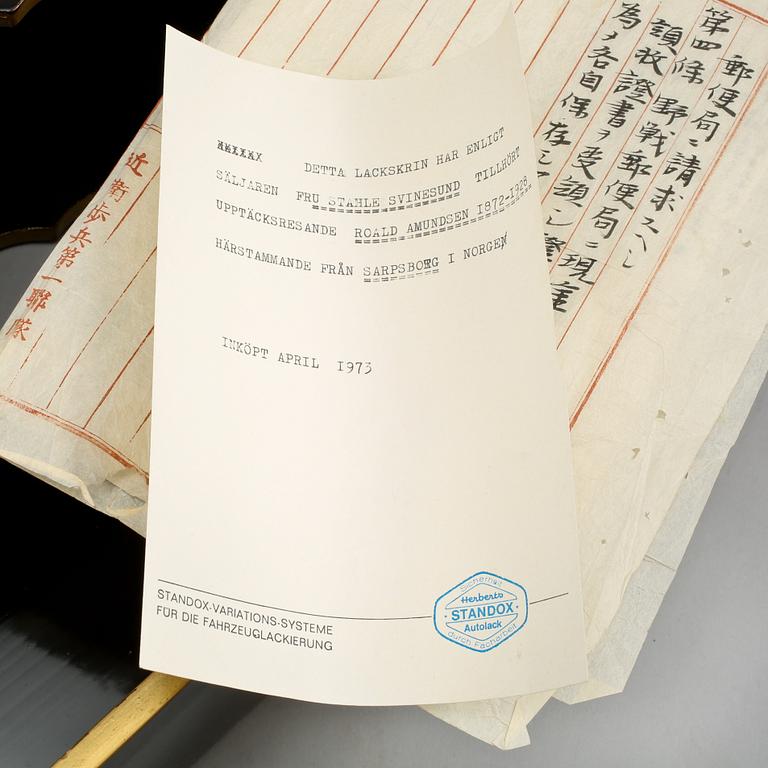 DETTA LACKSKRIN HAR ENLIGT
SÄLJAREN FRU STAHLE SVINESUND TILLHÖRT
UPPTÄCKSRESANDE ROALD AMUNDSEN 1872-1928
HÄRSTAMMANDE FRÅN SARPSBORG I NORGE
INKÖPT APRIL 1973
STANDOX-VARIATIONS-SYSTEME
FÜR DIE FAHRZEUGLACKIERUNG
Sicherheit
Herberts
STANDOX
Autolack
durch Facharbeit
郵便局ニ請求スヘシ
第四條 野戰郵便局ニ現
領收證書ヲ受領シ
為メ各自保存
近衛歩兵第一聯隊